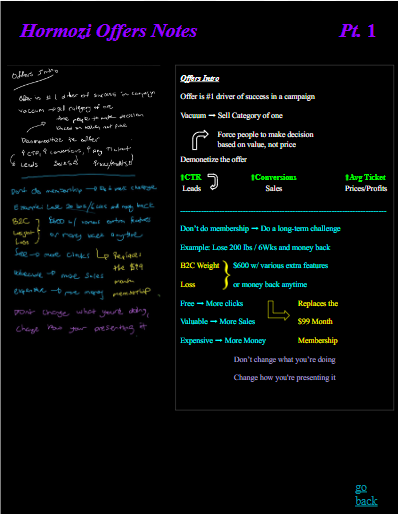 Hormozi Offers Notes Pt. 1
Offers Intro
Offer is # 1 driver of success in campaign
Vacuum → sell category of one
force people to make decision
based on value, not price
Demonetize the offer
↑ CTR, ↑ conversions, ↑ Avg Ticket
Leads Sales
Don't do membership →
Example: Lose
B2C $600 w/ various extra features
Weight or money back anytime
Loss
Free → more clicks Replaces
the $99
valuable → more sales month
expensive → more money membership
Don't change what you're doing,
change how your presenting it
Offers Intro
Offer is #1 driver of success in a campaign
Vacuum → Sell Category of one
Force people to make decision
based on value, not price
Demonetize the offer
↑CTR ↑Conversions ↑Avg Ticket
Leads Sales Prices/Profits
Don't do membership → Do a long-term challenge
Example: Lose 200 lbs / 6Wks and money back
B2C Weight $600 w/ various extra features
Loss or money back anytime
Free → More clicks Replaces the
Valuable → More Sales $99 Month
Expensive → More Money Membership
Don't change what you're doing
Change how you're presenting it
go
back